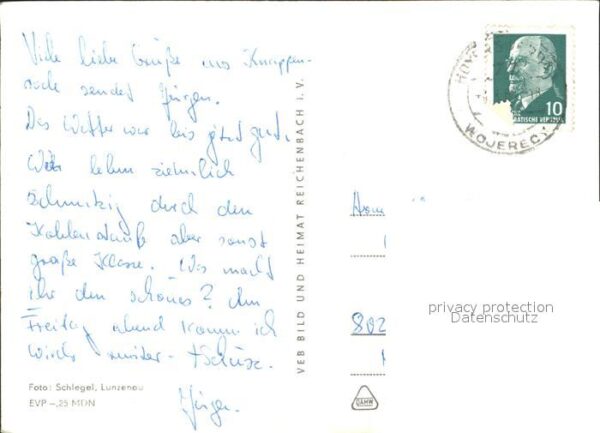 Viele liebe Grüße aus Knappen-
rode sendet Jürgen.
Das Wetter war bis jetzt gut.
Wir leben ziemlich
Schmutzig durch den
Kohlenstaub aber sonst
große Klasse. Was macht
ihr den schönes? Am
Freitag abend komm ich
wieder - tschüß.
Jürgen.
Foto: Schlegel, Lunzenau
EVP -,25 MDN
VEB BILD UND HEIMAT REICHENBACH i. V.
10
WOJEREC
802
DAMW
privacy protection
Datenschutz